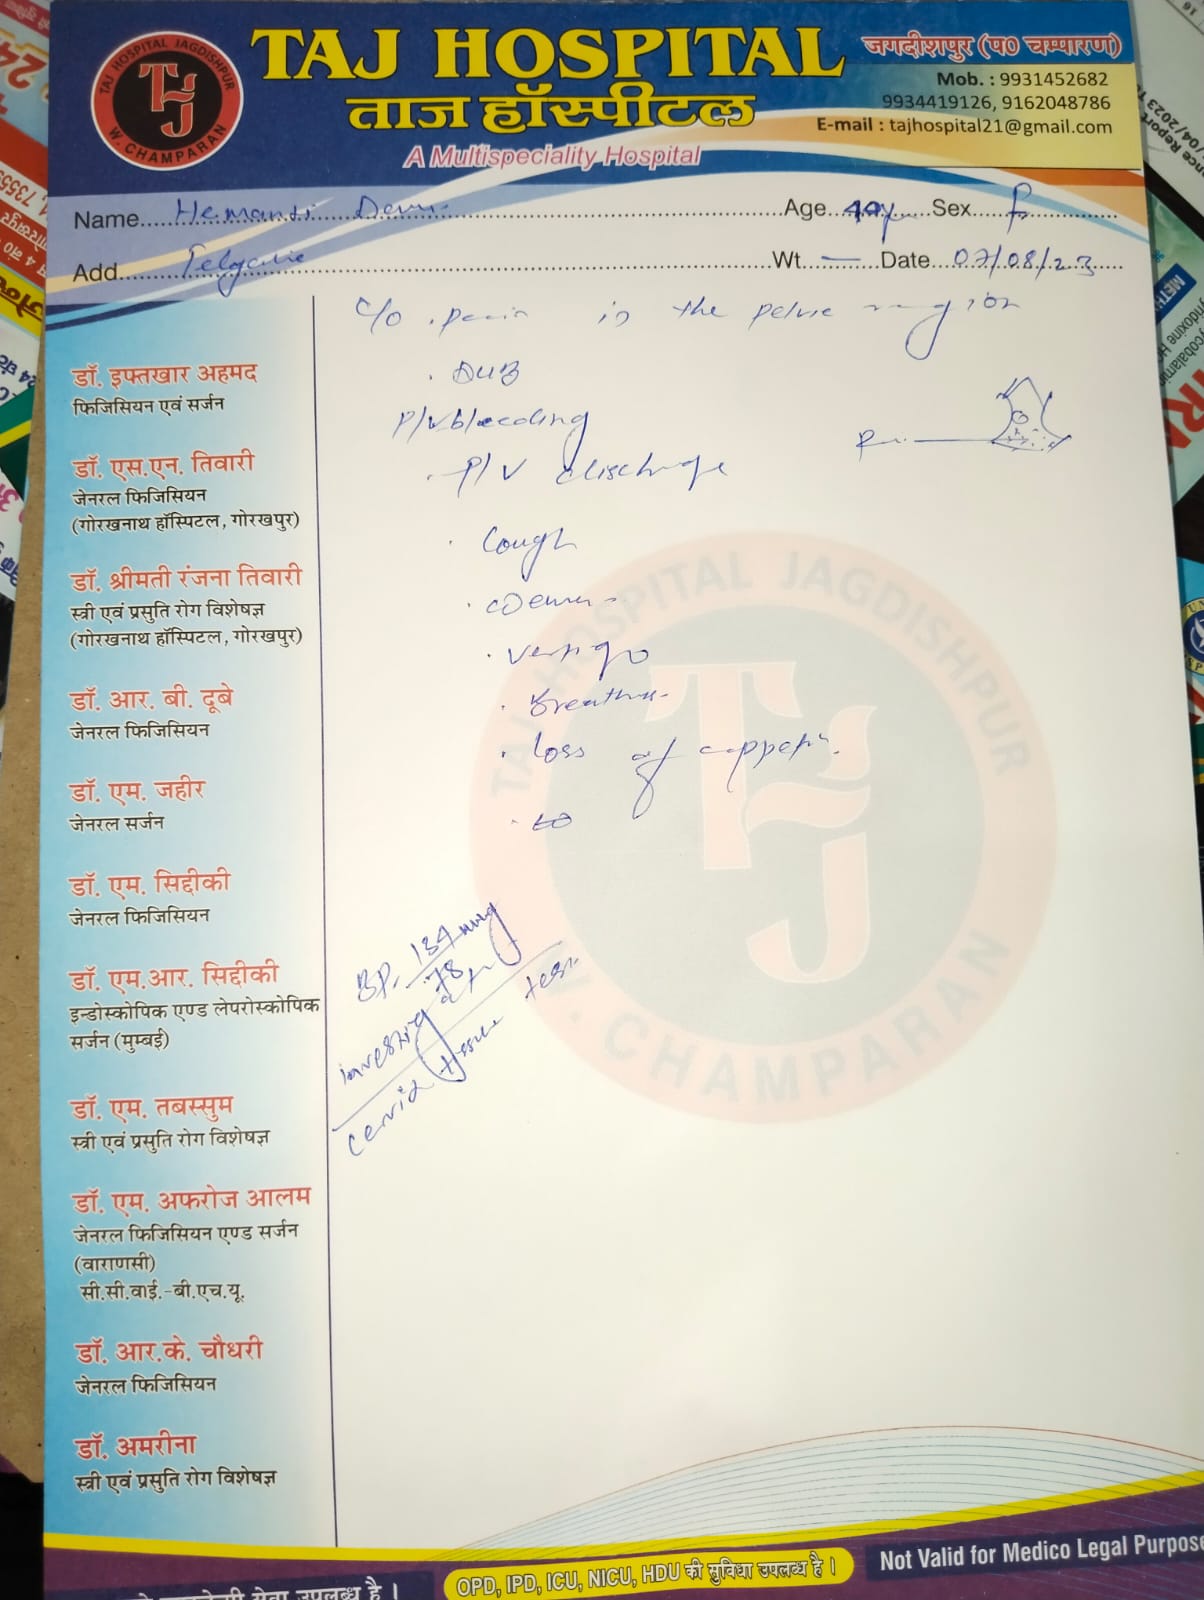 TAJ HOSPITAL JAGDISHPUR
W. CHAMPARAN
TAJ HOSPITAL
ताज हॉस्पीटल
A Multispeciality Hospital
जगदीशपुर (प० चम्पारण)
Mob. : 9931452682
9934419126, 9162048786
E-mail : tajhospital21@gmail.com
Name Hemanti Devi Age 40y Sex F
Add. Wt. — Date 07/08/23
C/O . pain in the pelvic region
. DUB
P/V bleeding
. P/V discharge
. Cough
. vertigo
. Loss of
BP. 134 mmg
78
tissue test
डॉ. इफ्तखार अहमद
फिजिसियन एवं सर्जन
डॉ. एस.एन. तिवारी
जेनरल फिजिसियन
(गोरखनाथ हॉस्पिटल, गोरखपुर)
डॉ. श्रीमती रंजना तिवारी
स्त्री एवं प्रसुति रोग विशेषज्ञ
(गोरखनाथ हॉस्पिटल, गोरखपुर)
डॉ. आर. बी. दूबे
जेनरल फिजिसियन
डॉ. एम. जहीर
जेनरल सर्जन
डॉ. एम. सिद्दीकी
जेनरल फिजिसियन
डॉ. एम.आर. सिद्दीकी
इन्डोस्कोपिक एण्ड लेपरोस्कोपिक
सर्जन (मुम्बई)
डॉ. एम. तबस्सुम
स्त्री एवं प्रसुति रोग विशेषज्ञ
डॉ. एम. अफरोज आलम
जेनरल फिजिसियन एण्ड सर्जन
(वाराणसी)
सी.सी.वाई.-बी.एच.यू.
डॉ. आर.के. चौधरी
जेनरल फिजिसियन
डॉ. अमरीना
स्त्री एवं प्रसुति रोग विशेषज्ञ
TAJ HOSPITAL JAGDISHPUR
W. CHAMPARAN
उपलब्ध है ।
OPD, IPD, ICU, NICU, HDU की सुविधा उपलब्ध है ।
Not Valid for Medico Legal Purpose